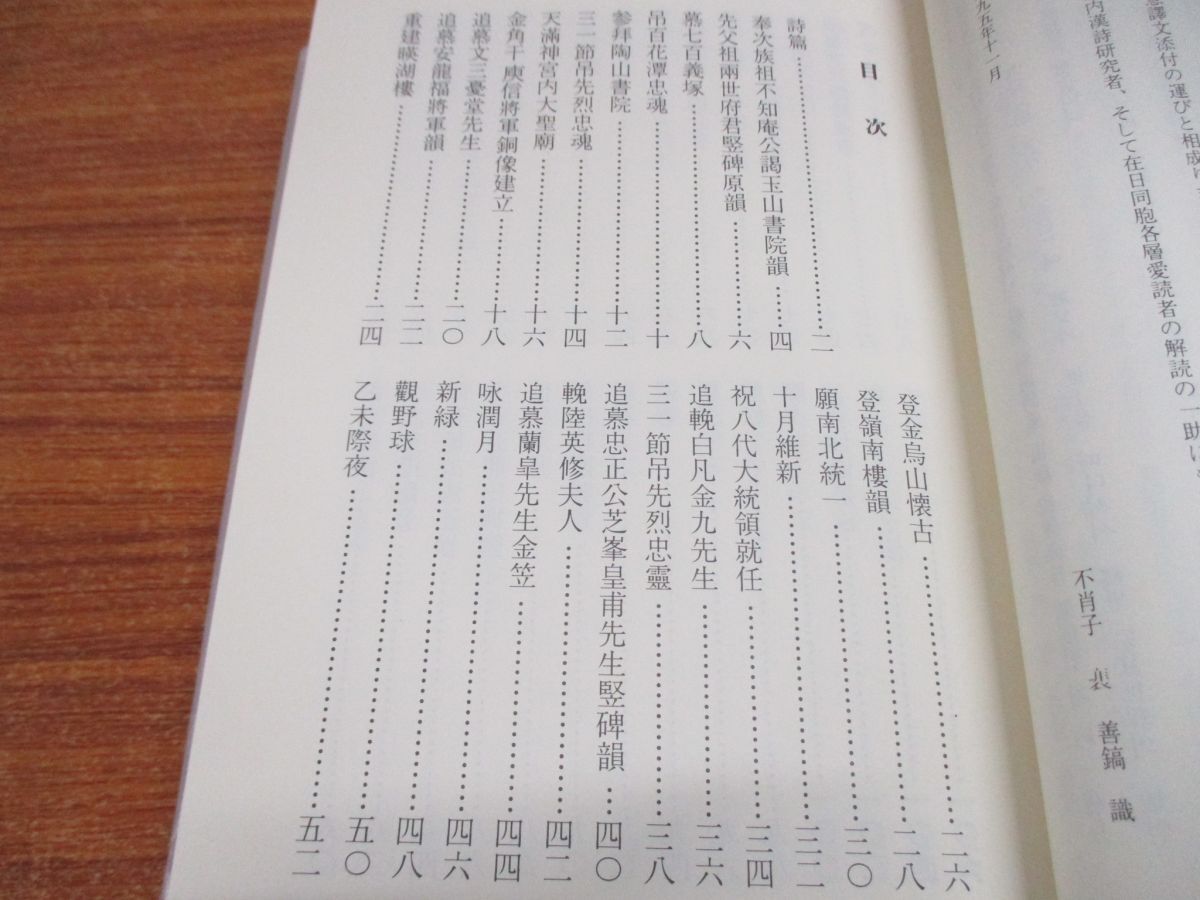 意譯文添付の運びと相成
内漢詩研究者、そして在日同胞各層愛読者の解読の一助に
九五年十一月
不肖子 裵 善鎬 識
目次
詩篇……二
奉次族祖不知庵公謁玉山書院韻……四
先父祖兩世府君竪碑原韻……六
墓七百義塚……八
吊百花潭忠魂……十
參拜陶山書院……十二
三一節吊先烈忠魂……十四
天滿神宮内大聖廟……十六
金角干庾信將軍銅像建立……十八
追慕文三憂堂先生……二〇
追慕安龍福將軍韻……二二
重建暎湖樓……二四
登金烏山懐古……二六
登嶺南樓韻……二八
願南北統一……三〇
十月維新……三二
祝八代大統領就任……三四
追輓白凡金九先生……三六
三一節吊先烈忠靈……三八
追慕忠正公芝峯皇甫先生竪碑韻……四〇
輓陸英修夫人……四二
追慕蘭皐先生金笠……四四
咏潤月……四六
新緑……四八
觀野球……五〇
乙未際夜……五二